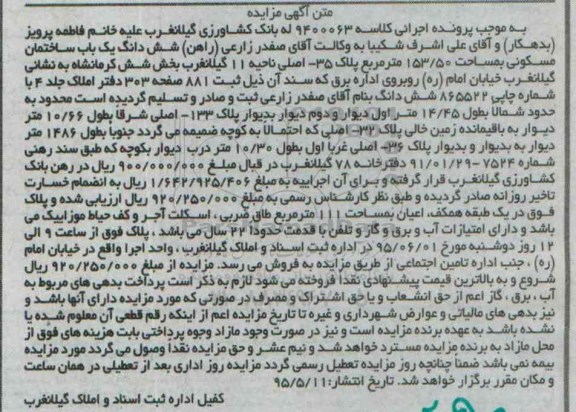 متن آگهی مزایده
به موجب پرونده اجرائی کلاسه ۹۴۰۰۰۶۳ له بانک کشاورزی گیلانغرب علیه خانم فاطمه پرویز
(بدهکار) و آقای علی اشرف شکیبا به وکالت آقای صفدر زارعی (راهن) شش دانگ یک باب ساختمان
مسکونی بمساحت ۱۵۳/۵۰ مترمربع پلاک ۳۵- اصلی ناحیه ۱۱ گیلانغرب بخش شش کرمانشاه به نشانی
گیلانغرب خیابان امام (ره) روبروی اداره برق که سند آن ذیل ثبت ۸۸۱ صفحه ۳۰۳ دفتر املاک جلد ۴ با
شماره چاپی ۸۶۵۵۲۲ شش دانگ بنام آقای صفدر زارعی ثبت و صادر و تسلیم گردیده است محدود به
حدود شمالا بطول ۱۴/۴۵ متر اول دیوار و دوم دیوار بدیوار پلاک ۱۳۳- اصلی شرقا بطول ۱۰/۶۶ متر
دیوار به باقیمانده زمین خالی پلاک ۳۲- اصلی که احتمالا به کوچه ضمیمه می گردد جنوبا بطول ۱۴۸۶ متر
دیوار به بدیوار و بدیوار پلاک ۳۶- اصلی غربا اول بطول ۱۰/۳۰ متر درب دیوار بکوچه که طبق سند رهنی
شماره ۷۵۲۴- ۹۱/۰۱/۲۹ دفترخانه ۷۸ گیلانغرب در قبال مبلغ ۹۰۰/۰۰۰/۰۰۰ ریال در رهن بانک
کشاورزی گیلانغرب قرار گرفته و برای آن اجراییه به مبلغ ۱/۶۴۲/۹۲۵/۴۰۶ ریال به انضمام خسارت
تاخیر روزانه صادر گردیده و طبق نظر کارشناس رسمی به مبلغ ۹۲۰/۲۵۰/۰۰۰ ریال ارزیابی شده و پلاک
فوق در یک طبقه همکف، اعیان بمساحت ۱۱۰ مترمربع طاق ضربی ، اسکلت آجر و کف حیاط موزاییک می
باشد و دارای امتیازات آب و برق و گاز و تلفن با قدمت حدودا ۲۲ سال می باشد ، پلاک فوق از ساعت ۹ الی
۱۲ روز دوشنبه مورخ ۹۵/۰۶/۰۱ در اداره ثبت اسناد و املاک گیلانغرب ، واحد اجرا واقع در خیابان امام
(ره) ، جنب اداره تامین اجتماعی از طریق مزایده به فروش می رسد. مزایده از مبلغ ۹۲۰/۲۵۰/۰۰۰ ریال
شروع و به بالاترین قیمت پیشنهادی نقدا فروخته می شود لازم به ذکر است پرداخت بدهی های مربوط به
آب ، برق ، گاز اعم از حق انشعاب و یا حق اشتراک و مصرف در صورتی که مورد مزایده دارای آنها باشد و
نیز بدهی های مالیاتی و عوارض شهرداری و غیره تا تاریخ مزایده اعم از اینکه رقم قطعی آن معلوم شده یا
نشده باشد به عهده برنده مزایده است و نیز در صورت وجود مازاد وجوه پرداختی بابت هزینه های فوق از
محل مازاد به برنده مزایده مسترد خواهد شد و نیم عشر و حق مزایده نقدا وصول می گردد مورد مزایده
بیمه نمی باشد ضمنا چنانچه روز مزایده تعطیل رسمی گردد مزایده روز اداری بعد از تعطیلی در همان ساعت
و مکان مقرر برگزار خواهد شد. تاریخ انتشار: ۹۵/۵/۱۱
کفیل اداره ثبت اسناد و املاک گیلانغرب